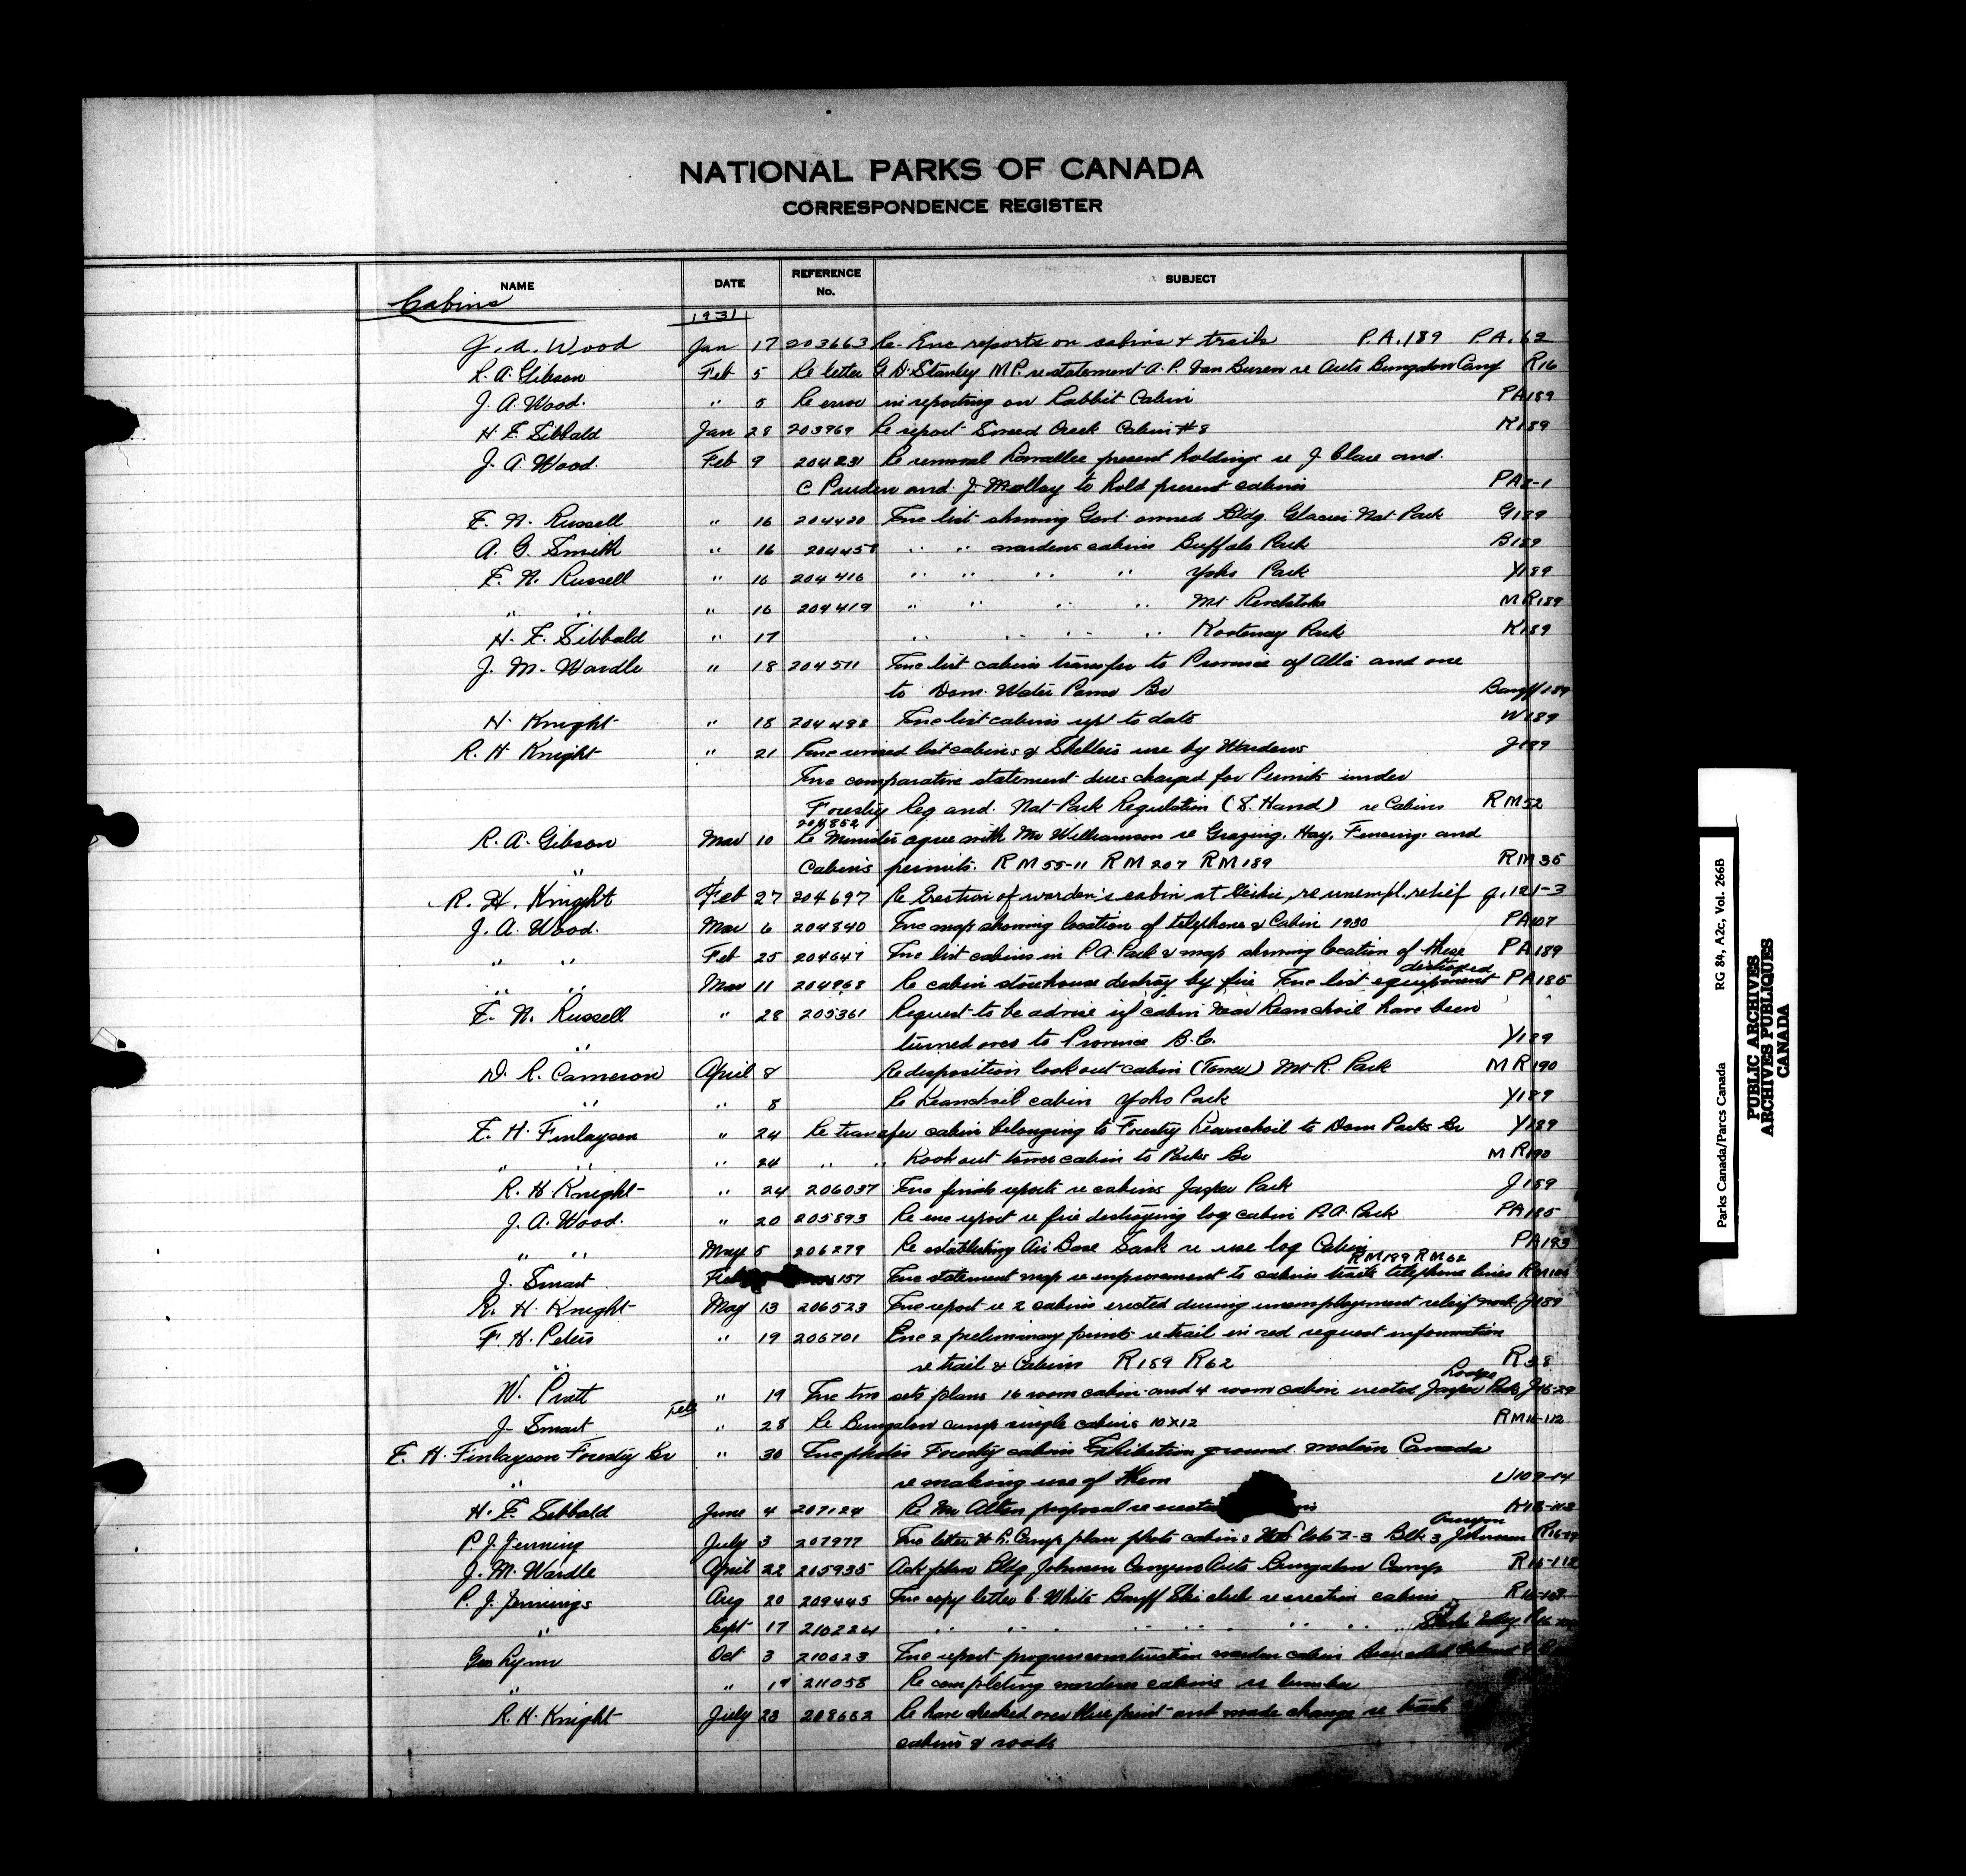 NATIONAL PARKS OF CANADA
CORRESPONDENCE REGISTER
NAME DATE REFERENCE No. SUBJECT
Cabins
1931
J. A. Wood Jan 17 203663 Re- Enc reports on cabins & trails P.A.189 P.A.62
R. A. Gibson Feb 5 Re letter G. D. Stanley M.P. re statement A. P. Van Buren re Auto Bungalow Camp R16
J. A. Wood. " 5 Re error in reporting on Rabbit Cabin PA189
H. E. Sibbald Jan 28 203969 Re report Creek Cabin #8 K189
J. A. Wood. Feb 9 Re present holdings re J. and
C Pruden and J. Molloy to hold present cabins PA2-1
F. N. Russell " 16 204420 Enc list showing Govt owned Bldg. Glacier Nat Park G189
A. G. Smith " 16 204458 " " wardens cabins Buffalo Park B189
F. N. Russell " 16 204416 " " " " Yoho Park Y189
" " " 16 204419 " " " " Mt. Revelstoke MR189
H. E. Sibbald " 17 " " " " Kootenay Park K189
J. M. Wardle " 18 204511 Enc list cabins transfer to Province of Alta and one
to Dom. Water Power Br Banff 189
H. Knight " 18 204498 Enc list cabins up to date W189
R. H Knight " 21 Enc revised list cabins & Shelters use by Wardens J189
Enc comparative statement dues charged for Permits under
Forestry Reg and Nat Park Regulation (S. Hand) re Cabins RM52
204852
R. A. Gibson Mar 10 Re Minister agree with Mr Williamson re Grazing, Hay, Fencing, and
" Cabins permits. RM55-11 RM207 RM189 RM35
R. H. Knight Feb 27 204697 Re Erection of warden's cabin at Geikie, re unempl. relief J.121-3
J. A. Wood. Mar 6 204840 Enc map showing location of telephone & Cabin 1930 PA107
" " Feb 25 204647 Enc list cabins in P.A. Park & map showing location of these PA189
destroyed
" " Mar 11 204968 Re cabin storehouse destroy by fire Enc list equipment PA185
F. N. Russell " 28 205361 Request to be advise if cabin near Leanchoil have been
" turned over to Province B.C. Y189
D. R. Cameron April 8 Re disposition look out cabin (Tower) Mt. R. Park MR190
" " 8 Re Leanchoil cabin Yoho Park Y189
E. H. Finlayson " 24 Re transfer cabin belonging to Forestry Leanchoil to Dom Parks Br Y189
" " " 24 " " Look out tower cabin to Parks Br MR190
R. H. Knight " 24 206037 Enc finals reports re cabins Jasper Park J189
J. A. Wood. " 20 205893 Re enc report re fire destroying log cabin P.A. Park PA185
" " May 5 206279 Re establishing Air Base Sask re use log Cabin PA193
RM189 RM62
J. Smart Feb 157 Enc statement map re improvement to cabins trails telephone lines
R. H. Knight May 13 206523 Enc report re 2 cabins erected during unemployment relief work J189
F. H. Peters " 19 206701 Enc 2 preliminary prints re trail in red request information
" re trail & Cabins R189 R62 R38
Lodge
W. Pratt " 19 Enc two sets plans 16 room cabin and 4 room cabin erected Jasper Park J16-29
J Smart Feb " 28 Re Bungalow camp single cabins 10x12 RM16-112
E. H. Finlayson Forestry Br " 30 Enc photos Forestry cabins Exhibition ground western Canada
" re making use of them U109-14
H. E. Sibbald June 4 207124 Re Mr proposal re
Canyon
P. J. Jenning July 3 207977 Enc letter Camp plan photo cabins Lots 2-3 Blk 3 Johnson
J. M. Wardle April 22 205935 Ack plan Bldg Johnson Canyon Auto Bungalow Camp R16-112
P. J. Jennings Aug 20 209445 Enc copy letter C White Banff Ski club re erection cabins
" Sept 17 210224 " " " " " "
Geo Lynn Oct 3 210623 Enc report progress construction warden cabin
" " 19 211058 Re completing wardens cabins re lumber
R. H. Knight July 23 208662 Re have checked over blue print and made change re trails
cabins & roads
Parks Canada/Parcs Canada RG 84, A2c, Vol. 266B
PUBLIC ARCHIVES
ARCHIVES PUBLIQUES
CANADA